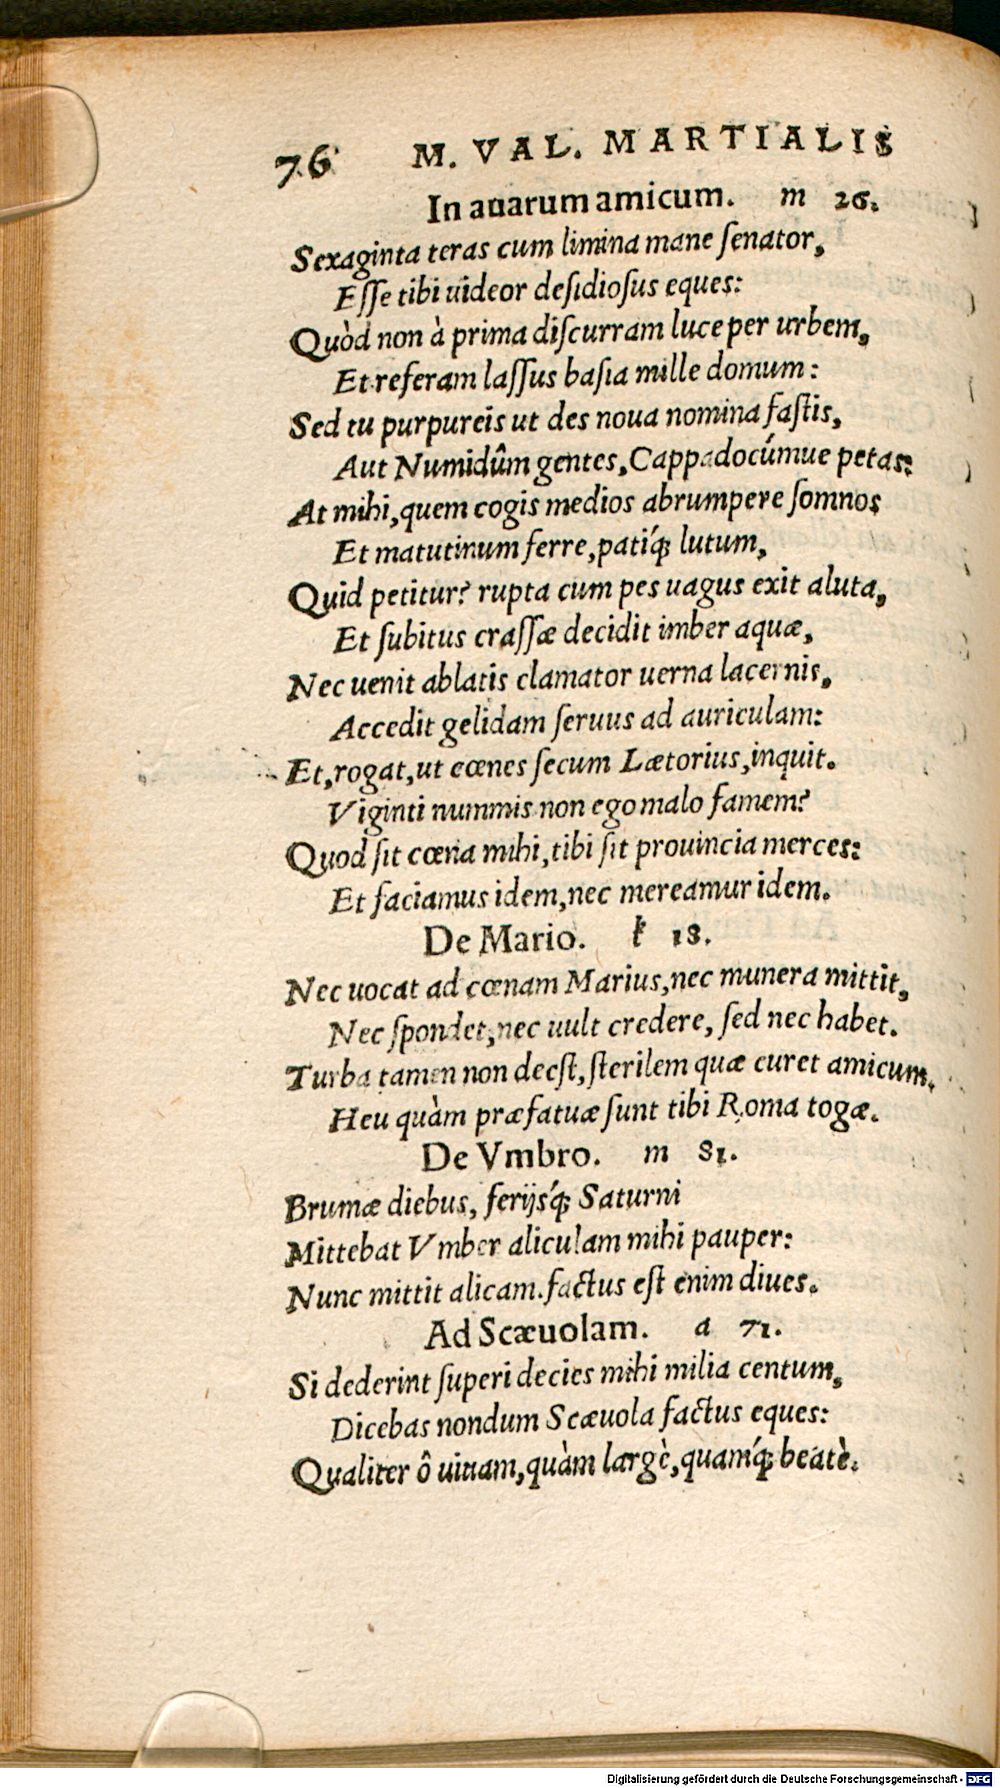 76 M. VAL. MARTIALIS
In auarum amicum. m 26.
Sexaginta teras cum limina mane ſenator,
Eſſe tibi uideor deſidioſus eques:
Quòd non à prima diſcurram luce per urbem,
Et referam laſſus baſia mille domum:
Sed tu purpureis ut des noua nomina faſtis,
Aut Numidûm gentes, Cappadocúmue petas:
At mihi, quem cogis medios abrumpere ſomnos
Et matutinum ferre, patíq; lutum,
Quid petitur? rupta cum pes uagus exit aluta,
Et ſubitus craſſæ decidit imber aquæ,
Nec uenit ablatis clamator uerna lacernis,
Accedit gelidam ſeruus ad auriculam:
Et, rogat, ut cœnes ſecum Lætorius, inquit.
Viginti nummis non ego malo famem?
Quod ſit cœna mihi, tibi ſit prouincia merces:
Et faciamus idem, nec mereamur idem.
De Mario. k 18.
Nec uocat ad cœnam Marius, nec munera mittit,
Nec ſpondet, nec uult credere, ſed nec habet.
Turba tamen non deeſt, ſterilem quæ curet amicum.
Heu quàm præfatuæ ſunt tibi Roma togæ.
De Vmbro. m 81.
Brumæ diebus, ferijsq́; Saturni
Mittebat Vmber aliculam mihi pauper:
Nunc mittit alicam. factus eſt enim diues.
Ad Scæuolam. a 71.
Si dederint ſuperi decies mihi milia centum,
Dicebas nondum Scæuola factus eques:
Qualiter ô uiuam, quàm largè, quamq́; beatè.
Digitalisierung gefördert durch die Deutsche Forschungsgemeinschaft - DFG